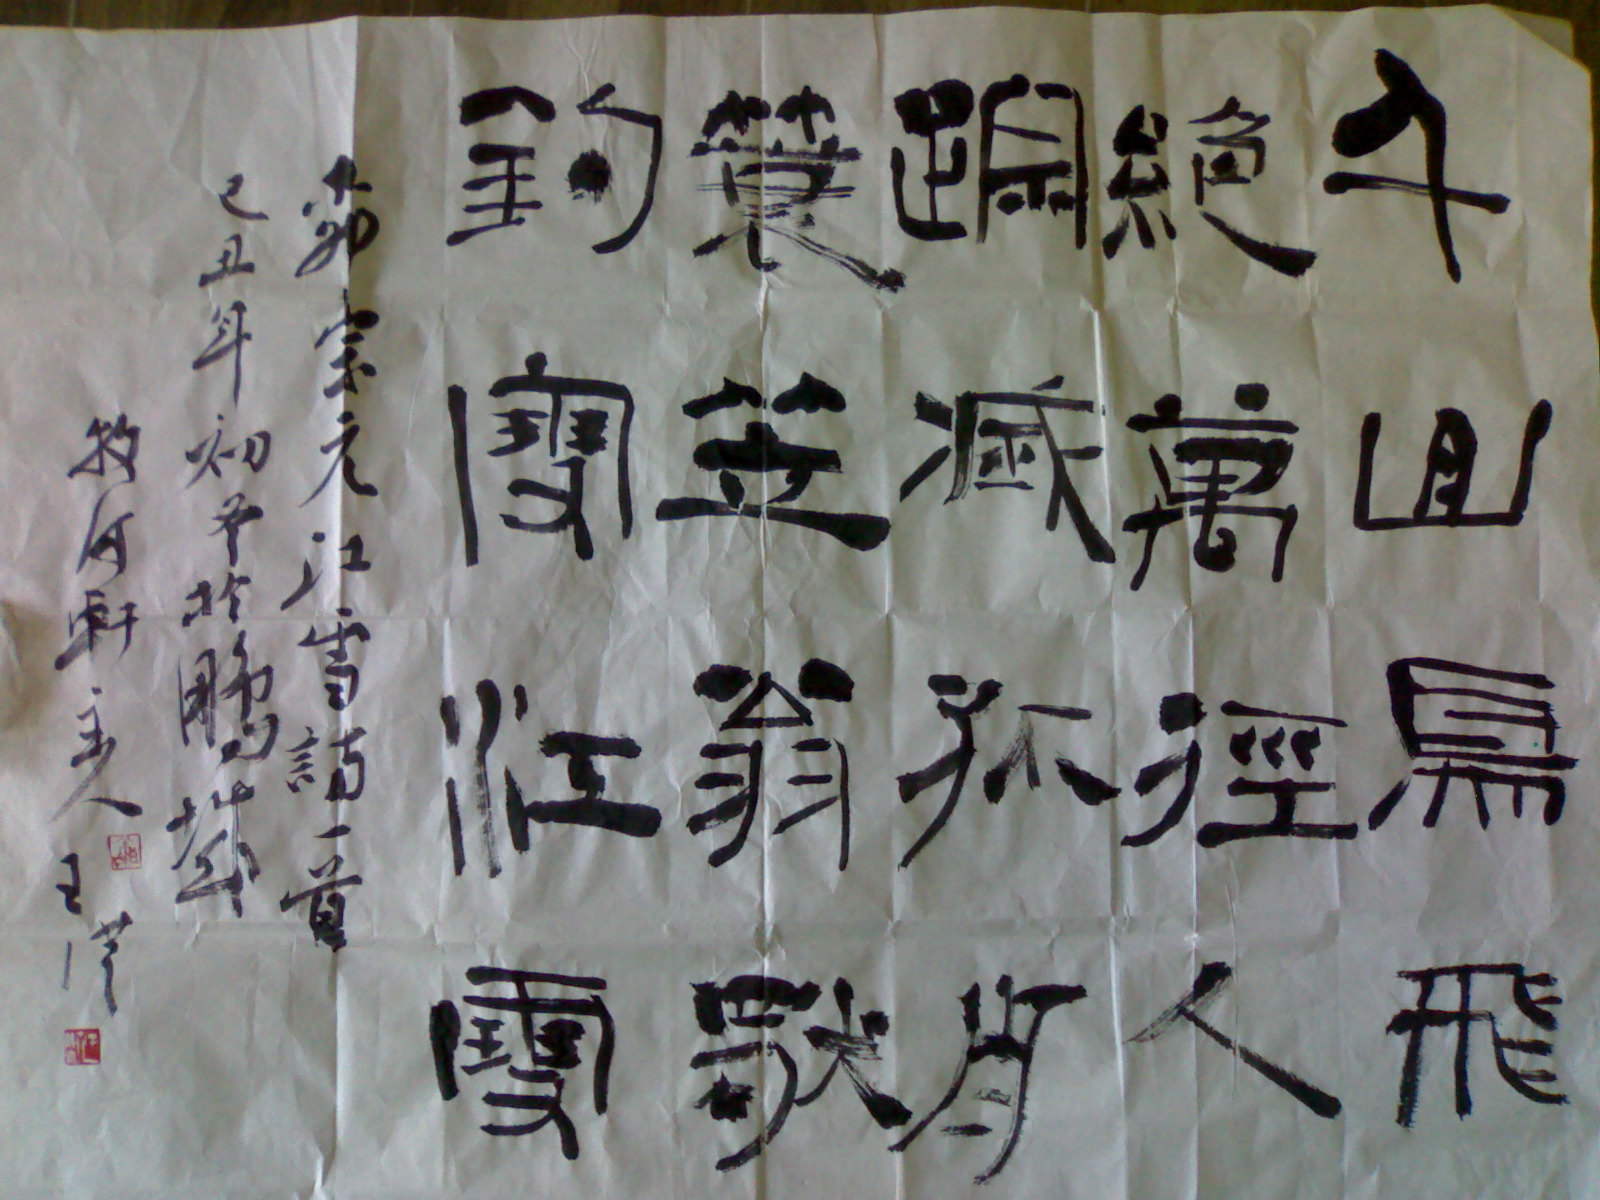 千山鳥飛
絕萬徑人
踪滅孤舟
蓑笠翁獨
釣寒江雪
柳宗元江雪詩一首
己丑年初於鵬城
軒主人 王